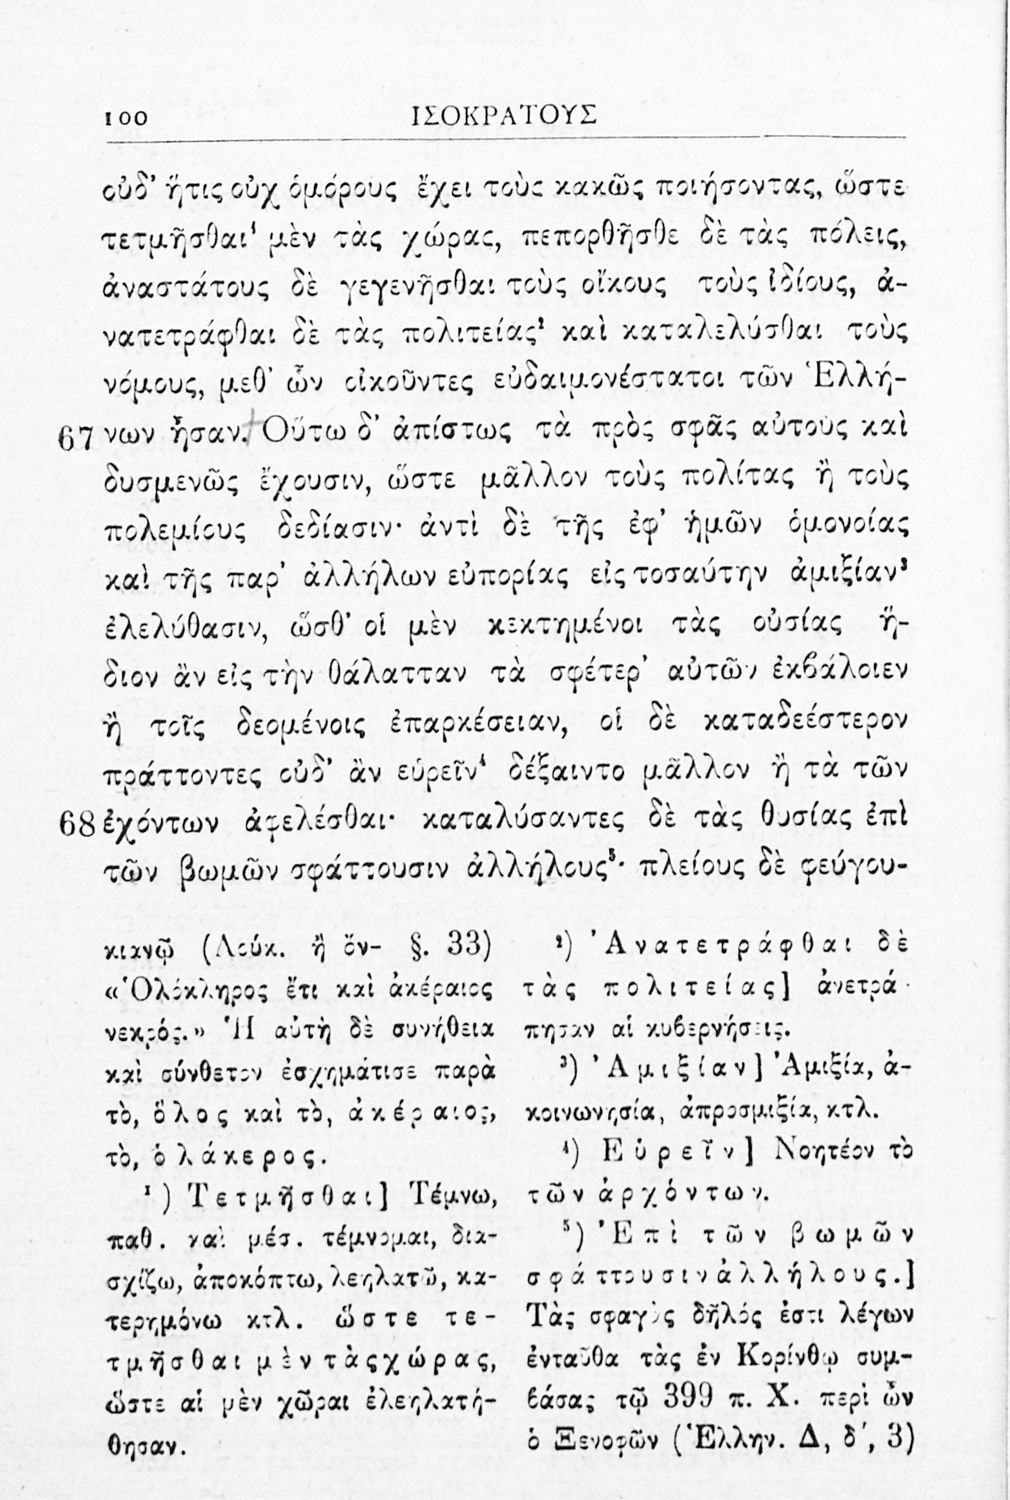 100 ΙΣΟΚΡΑΤΟΥΣ
οὐδ' ἥτις οὐχ ὁμόρους ἔχει τοὺς κακῶς ποιήσοντας, ὥστε
τετμῆσθαι¹ μὲν τὰς χώρας, πεπορθῆσθε δὲ τὰς πόλεις,
ἀναστάτους δὲ γεγενῆσθαι τοὺς οἴκους τοὺς ἰδίους, ἀ-
νατετράφθαι δὲ τὰς πολιτείας² καὶ καταλελύσθαι τοὺς
νόμους, μεθ' ὧν οἰκοῦντες εὐδαιμονέστατοι τῶν Ἑλλή-
67 νων ἦσαν. Οὕτω δ' ἀπίστως τὰ πρὸς σφᾶς αὐτοὺς καὶ
δυσμενῶς ἔχουσιν, ὥστε μᾶλλον τοὺς πολίτας ἢ τοὺς
πολεμίους δεδίασιν· ἀντὶ δὲ τῆς ἐφ' ἡμῶν ὁμονοίας
καὶ τῆς παρ' ἀλλήλων εὐπορίας εἰς τοσαύτην ἀμιξίαν³
ἐλελύθασιν, ὥσθ' οἱ μὲν κεκτημένοι τὰς οὐσίας ἥ-
διον ἂν εἰς τὴν θάλατταν τὰ σφέτερ' αὐτῶν ἐκβάλοιεν
ἢ τοῖς δεομένοις ἐπαρκέσειαν, οἱ δὲ καταδεέστερον
πράττοντες οὐδ' ἂν εὑρεῖν⁴ δέξαιντο μᾶλλον ἢ τὰ τῶν
68 ἐχόντων ἀφελέσθαι· καταλύσαντες δὲ τὰς θυσίας ἐπὶ
τῶν βωμῶν σφάττουσιν ἀλλήλους⁵· πλείους δὲ φεύγου-
κιανῷ (Λούκ. ἢ ὄν- §. 33)
«Ὁλόκληρος ἔτι καὶ ἀκέραιος
νεκρός.» Ἡ αὐτὴ δὲ συνήθεια
καὶ σύνθετον ἐσχημάτισε παρὰ
τὸ, ὅλος καὶ τὸ, ἀκέραιος,
τὸ, ὁλάκερος.
¹) Τετμῆσθαι] Τέμνω,
παθ. καὶ μέσ. τέμνομαι, δια-
σχίζω, ἀποκόπτω, λεηλατῶ, κα-
τερημόνω κτλ. ὥστε τε-
τμῆσθαι μὲν τὰς χώρας,
ὥστε αἱ μὲν χῶραι ἐλεηλατή-
θησαν.
²) Ἀνατετράφθαι δὲ
τὰς πολιτείας] ἀνετρά-
πησαν αἱ κυβερνήσεις.
³) Ἀμιξίαν] Ἀμιξία, ἀ-
κοινωνησία, ἀπροσμιξία, κτλ.
⁴) Εὑρεῖν] Νοητέον τὸ
τῶν ἀρχόντων.
⁵) Ἐπὶ τῶν βωμῶν
σφάττουσιν ἀλλήλους.]
Τὰς σφαγὰς δῆλός ἐστι λέγων
ἐνταῦθα τὰς ἐν Κορίνθῳ συμ-
βάσας τῷ 399 π. Χ. περὶ ὧν
ὁ Ξενοφῶν (Ἑλλην. Δ, δ', 3)